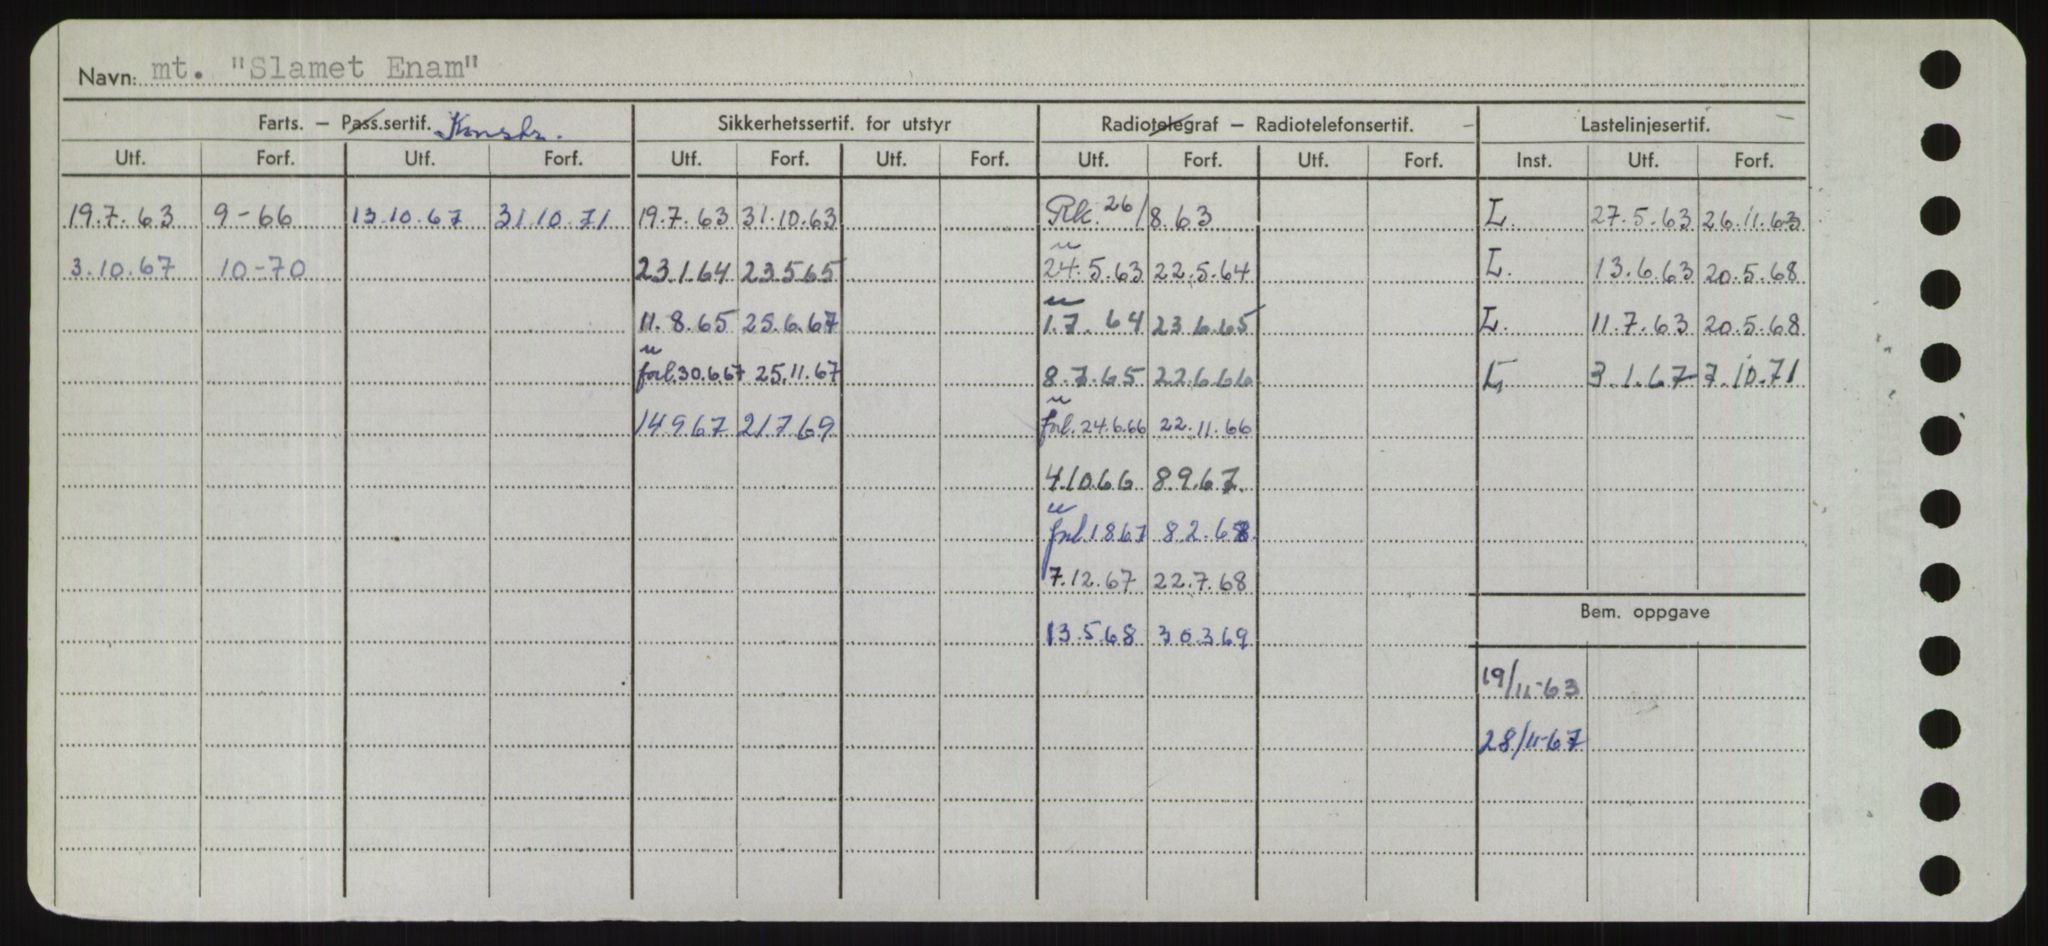 Navn: mt. "Slamet Enam"
Farts. – Pass.sertif. Konstr. Sikkerhetssertif. for utstyr Radiotelegraf – Radiotelefonsertif. Lastelinjesertif.
Utf. Forf. Utf. Forf. Utf. Forf. Utf. Forf. Utf. Forf. Utf. Forf. Inst. Utf. Forf.
19.7.63 9-66 13.10.67 31.10.71 19.7.63 31.10.63 Rk. 26/8.63 L. 27.5.63 26.11.63
3.10.67 10-70 23.1.64 23.5.65 24.5.63 22.5.64 L. 13.6.63 20.5.68
11.8.65 25.6.67 1.7.64 23.6.65 L. 11.7.63 20.5.68
forl. 30.6.67 25.11.67 8.7.65 22.6.66 L. 3.1.67 7.10.71
14967 21769 forl. 24.6.66 22.11.66
4.10.66 8.9.67.
forl. 1867 8.2.68
7.12.67 22.7.68
Bem. oppgave
13.5.68 30.3.69
19/11-63
28/11-67